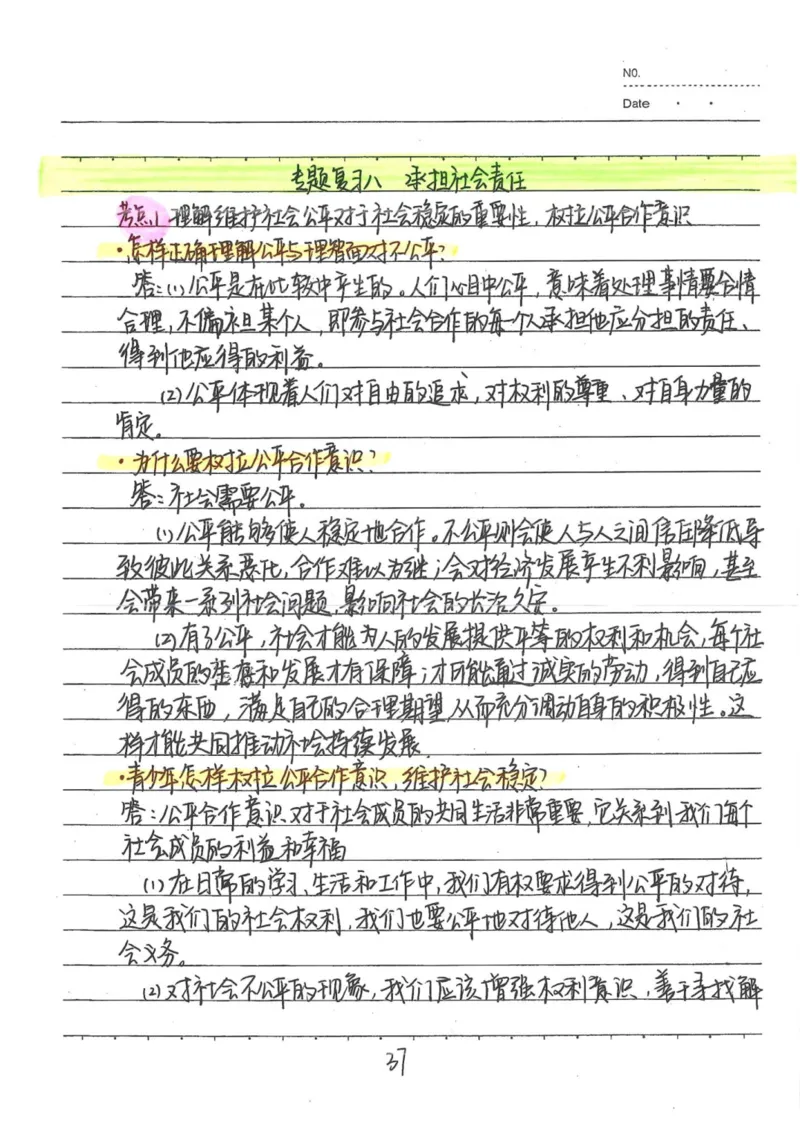 NO.
Date
专题复习八 承担社会责任
考点1 理解维护社会公平对于社会稳定的重要性，树立公平合作意识
·怎样正确理解公平与理智面对不公平？
答：(1)公平是在比较中产生的。人们心目中公平，意味着处理事情要合情
合理，不偏袒某个人，即参与社会合作的每一个人承担他应分担的责任、
得到他应得的利益。
(2)公平体现着人们对自由的追求，对权利的尊重、对自身力量的
肯定。
·为什么要树立公平合作意识？
答：社会需要公平。
(1)公平能够使人稳定地合作。不公平则会使人与人之间信任降低导
致彼此关系恶化，合作难以为继；会对经济发展产生不利影响，甚至
会带来一系列社会问题，影响社会的长治久安。
(2)有了公平，社会才能为人的发展提供平等的权利和机会，每个社
会成员的生存和发展才有保障；才可能通过诚实的劳动，得到自己应
得的东西，满足自己的合理期望，从而充分调动自身的积极性。这
样才能共同推动社会持续发展
·青少年怎样树立公平合作意识，维护社会稳定？
答：公平合作意识对于社会成员的共同生活非常重要，它关系到我们每个
社会成员的利益和幸福
(1)在日常的学习、生活和工作中，我们有权要求得到公平的对待，
这是我们的社会权利，我们也要公平地对待他人，这是我们的社
会义务。
(2)对社会不公平的现象，我们应该增强权利意识，善于寻找解
37